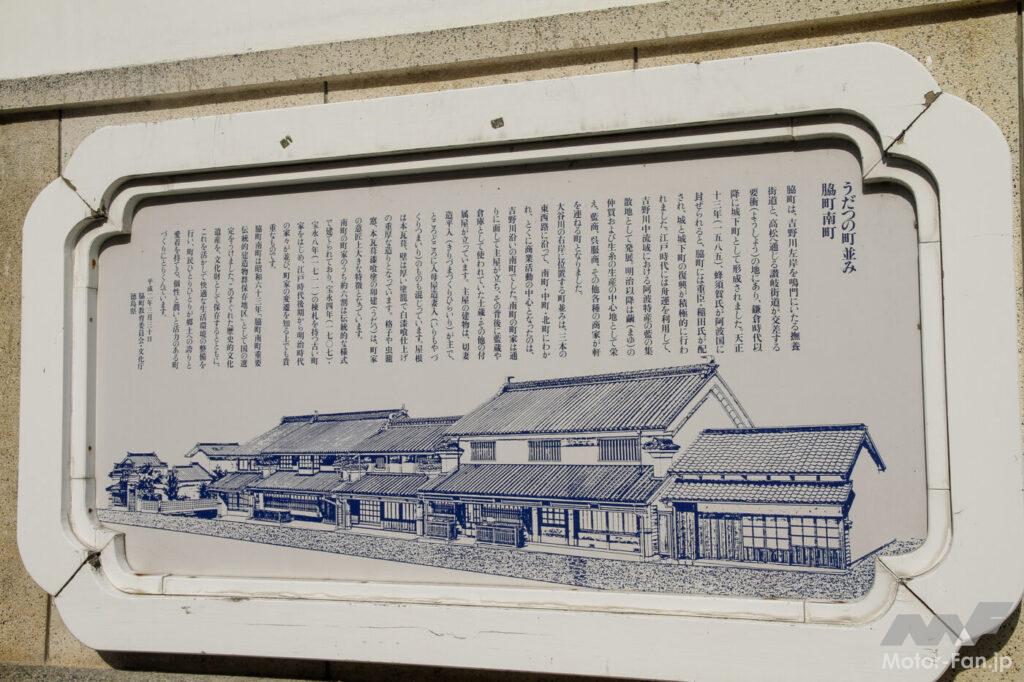 うだつの町並み
脇町南町
脇町は、吉野川左岸を鳴門にいたる撫養
街道と、高松へ通じる讃岐街道が交差する
要衝(ようしょう)の地にあり、鎌倉時代以
降に城下町として形成されました。天正
十三年(一五八五)、蜂須賀氏が阿波国に
封ぜられると、脇町には重臣・稲田氏が配
され、城と城下町の復興が積極的に行わ
れました。江戸時代には舟運を利用して、
吉野川中流域における阿波特産の藍の集
散地として発展、明治以降は繭(まゆ)の
仲買および生糸の生産の中心地として栄
え、藍商、呉服商、その他各種の商家が軒
を連ねる町となりました。
大谷川の右岸に位置する町並みは、三本の
東西路に沿って、南町・中町・北町にわか
れ、とくに商業活動の中心となったのは、
吉野川沿いの南町でした。南町の町家は通
りに面して主屋が立ち、その背後に藍蔵や
倉庫として使われていた土蔵・その他の付
属屋が立っています。主屋の建物は、切妻
造平入(きりづまづくりひらいり)が主で、
ところどころに入母屋造妻入(いりもやづ
くりつまいり)のものも混じっています。屋根
は本瓦葺、壁は厚い塗籠で、白漆喰仕上げ
の重厚な造りとなっています。格子や虫籠
窓、本瓦葺漆喰塗の卯建(うだつ)は、町家
の意匠上大きな特徴となっています。
南町の町家のうち約六割は伝統的な様式
で建てられており、宝永四年(一七〇七)・
宝永八年(一七一一)の棟札を持つ古い町
家をはじめ、江戸時代後期から明治時代
の家々が並び、町家の変遷を知る上でも貴
重なものです。
脇町南町は昭和六十三年、脇町南町重要
伝統的建造物群保存地区」として国の選
定をうけました。このすぐれた歴史的文化
遺産を、文化財として保存するとともに、
これを活かして快適な生活環境の整備を
行い、町民ひとりひとりが郷土への誇りと
愛着を持てる、個性と潤いと活力のある町
づくりにとりくんでいます。
平成二年三月三十日
脇町教育委員会・文化庁
徳島県
Motor-Fan.jp